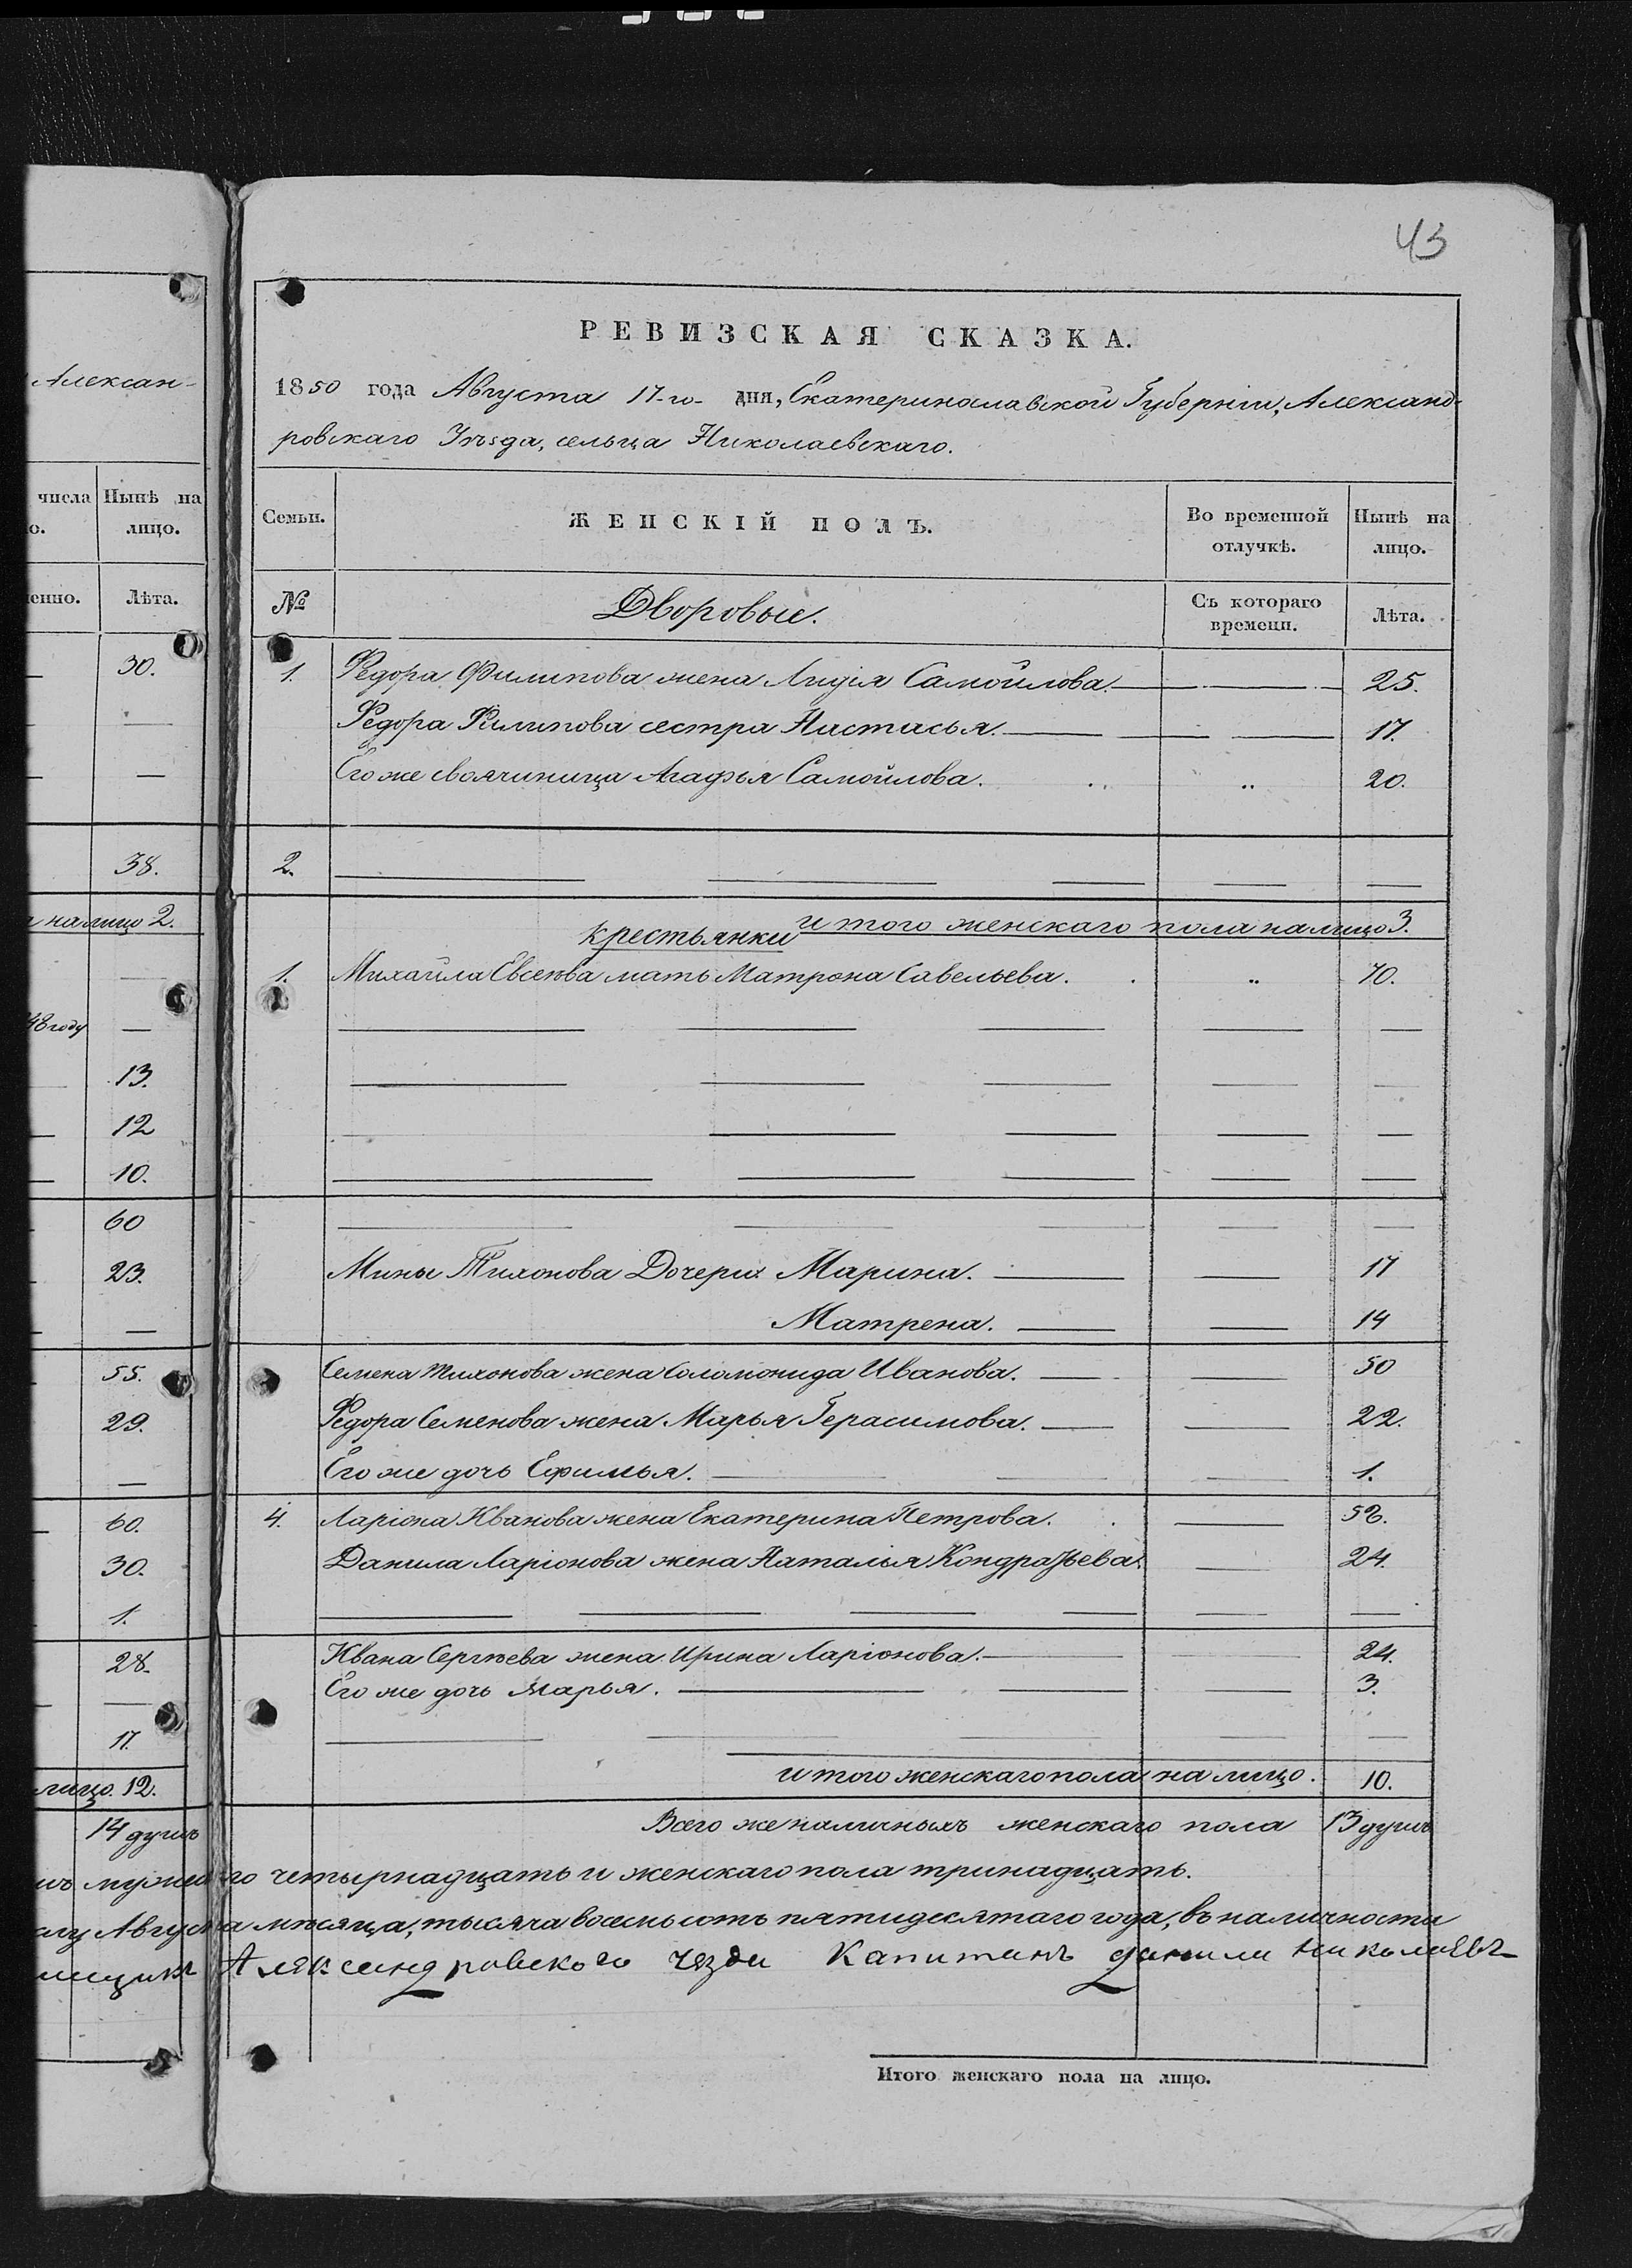 43
Алексан-
числа
Нынѣ на
лицо.
Лѣта.
30.
38.
на лицо 2.
48 году
13.
12
10.
60
23.
55.
29.
60.
30.
1.
28.
17.
лицо. 12.
14 душъ
РЕВИЗСКАЯ СКАЗКА.
1850 года Августа 17-го дня, Екатеринославской Губерніи, Александ-
ровскаго Уѣзда, сельца Николаевскаго.
Семьи.
ЖЕНСКІЙ ПОЛЪ.
Во временной
отлучкѣ.
Нынѣ на
лицо.
№
Дворовые.
Съ котораго
времени.
Лѣта.
1. Федора Филипова жена Лидія Самойлова. 25.
Федора Филипова сестра Настасья. 17.
Его же своячиница Агафья Самойлова. 20.
2.
итого женскаго пола на лицо 3.
крестьянки
1. Михайла Евсеюва мать Матрона Савельева. 70.
Мины Тихонова Дочери Марина. 17
Матрена. 14
Семена Тихонова жена Соломонида Иванова. 50
Федора Семенова жена Марья Герасимова. 22.
Его же дочь Ефимья. 1.
4. Ларіона Иванова жена Екатерина Петрова. 52.
Данила Ларіонова жена Наталья Кондратьева. 24.
Ивана Сергѣева жена Ирина Ларіонова. 24.
Его же дочь Марья. 3.
итого женскаго пола на лицо. 10.
Всего же наличныхъ женскаго пола 13 душъ
го четырнадцать и женскаго пола тринадцать.
Августа мѣсяца, тысяча восемьсотъ пятидесятаго года, въ наличности
Аляксандровского уезда Капитанъ данила Николаевъ
Итого женскаго пола на лицо.